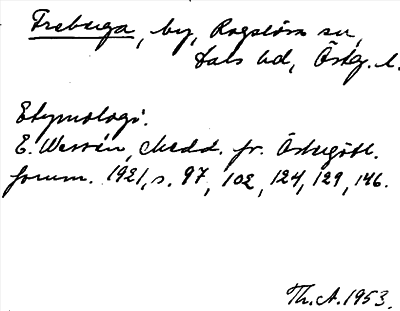 Treberga, by, Rogslösa sn,
Dals hd, Östg. l.
Etymologi.
E. Wessén, Medd. fr. Östergötl.
fornm. 1921, s. 97, 102, 124, 129, 146.
Th. A. 1953.